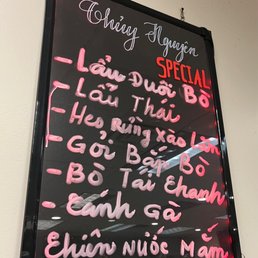 Thúy Nguyên
SPECIAL
- Lẩu Đuôi Bò
- Lẩu Thái
- Heo Rừng Xào Lăn
- Gỏi Bắp Bò
- Bò Tái Chanh
- Cánh Gà
Chiên Nước Mắm